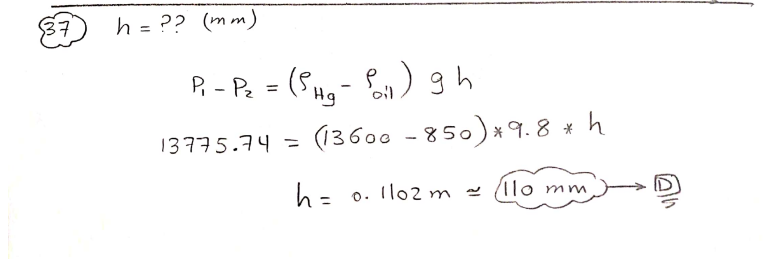 37 h = ?? (mm)
P₁ - P₂ = (ρHg - ρoil) g h
13775.74 = (13600 - 850) * 9.8 * h
h = 0.1102 m ≃ 110 mm → D